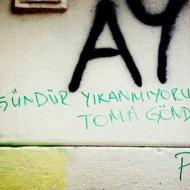 AY
GÜNDÜR YIKANMIYORU
TOMA GÖND